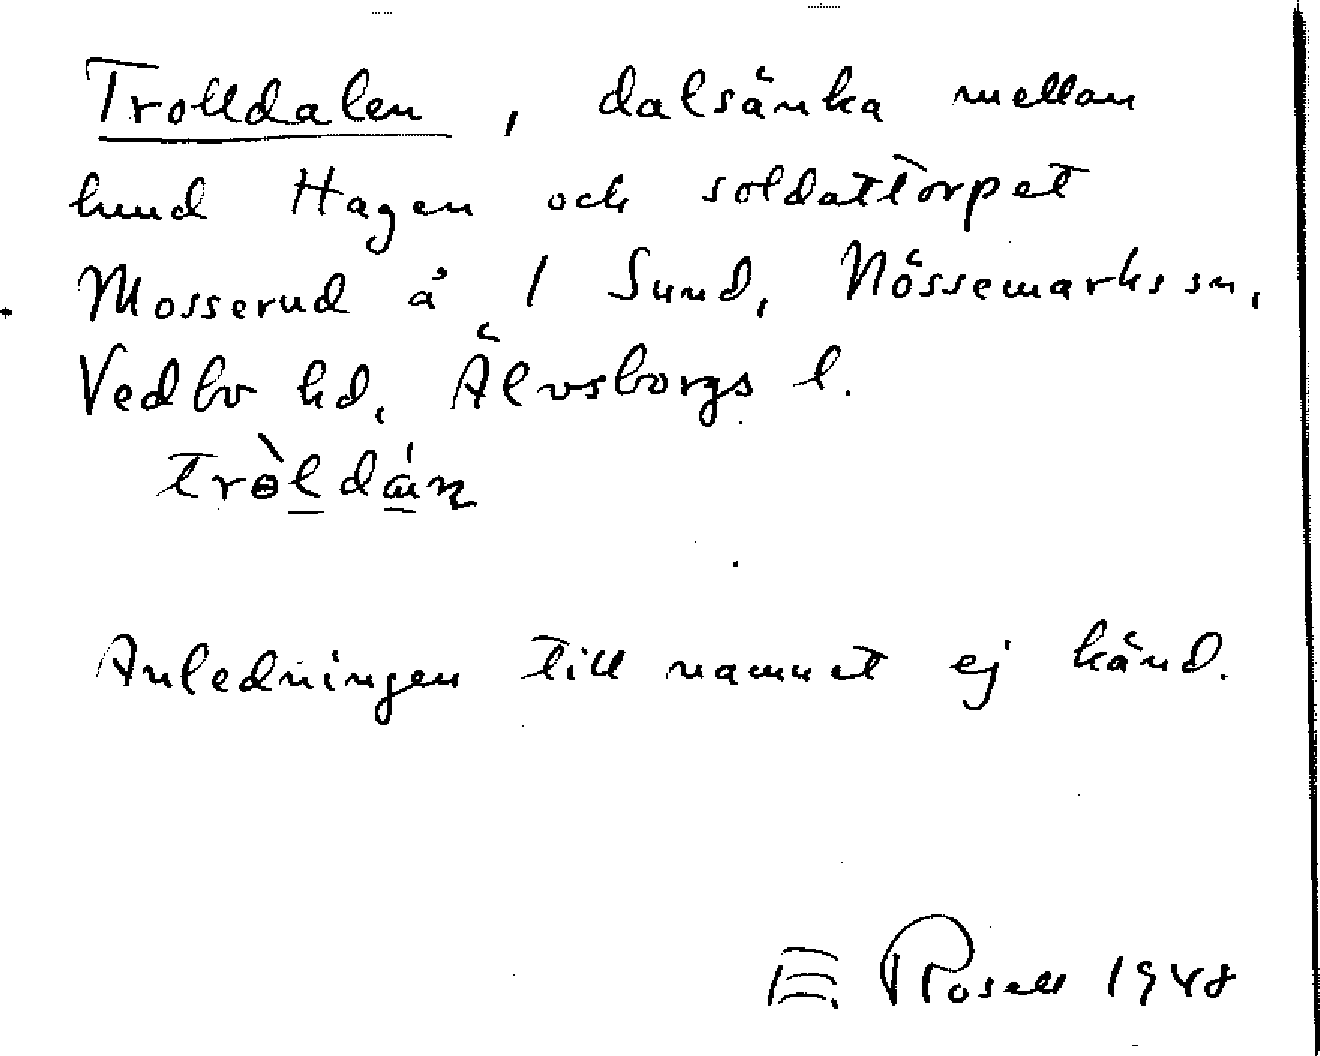 Trolldalen, dalsänka mellan
hmd Hagen och soldattorpet
Mosserud å 1 Sund, Nössemarks sn,
Vedbo hd, Älvsborgs l.
trɵ̀ldán
Anledningen till namnet ej känd.
E. Rosell 1948